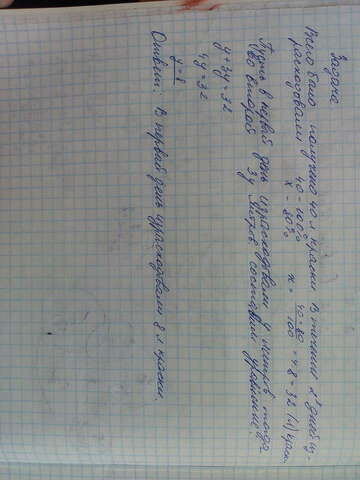 Задача
Всего было получено 40 л краски В течении 2х дней из-
расходовали 40 - 100% x = 40 · 80 / 100 = 4·8 = 32 (л) крас.
x - 80%
Пусть в первый день израсходовали y литров тогда
во второй 3y литров составим уравнение:
y + 3y = 32
4y = 32
y = 8
Ответ: В первый день израсходовали 8 л краски.